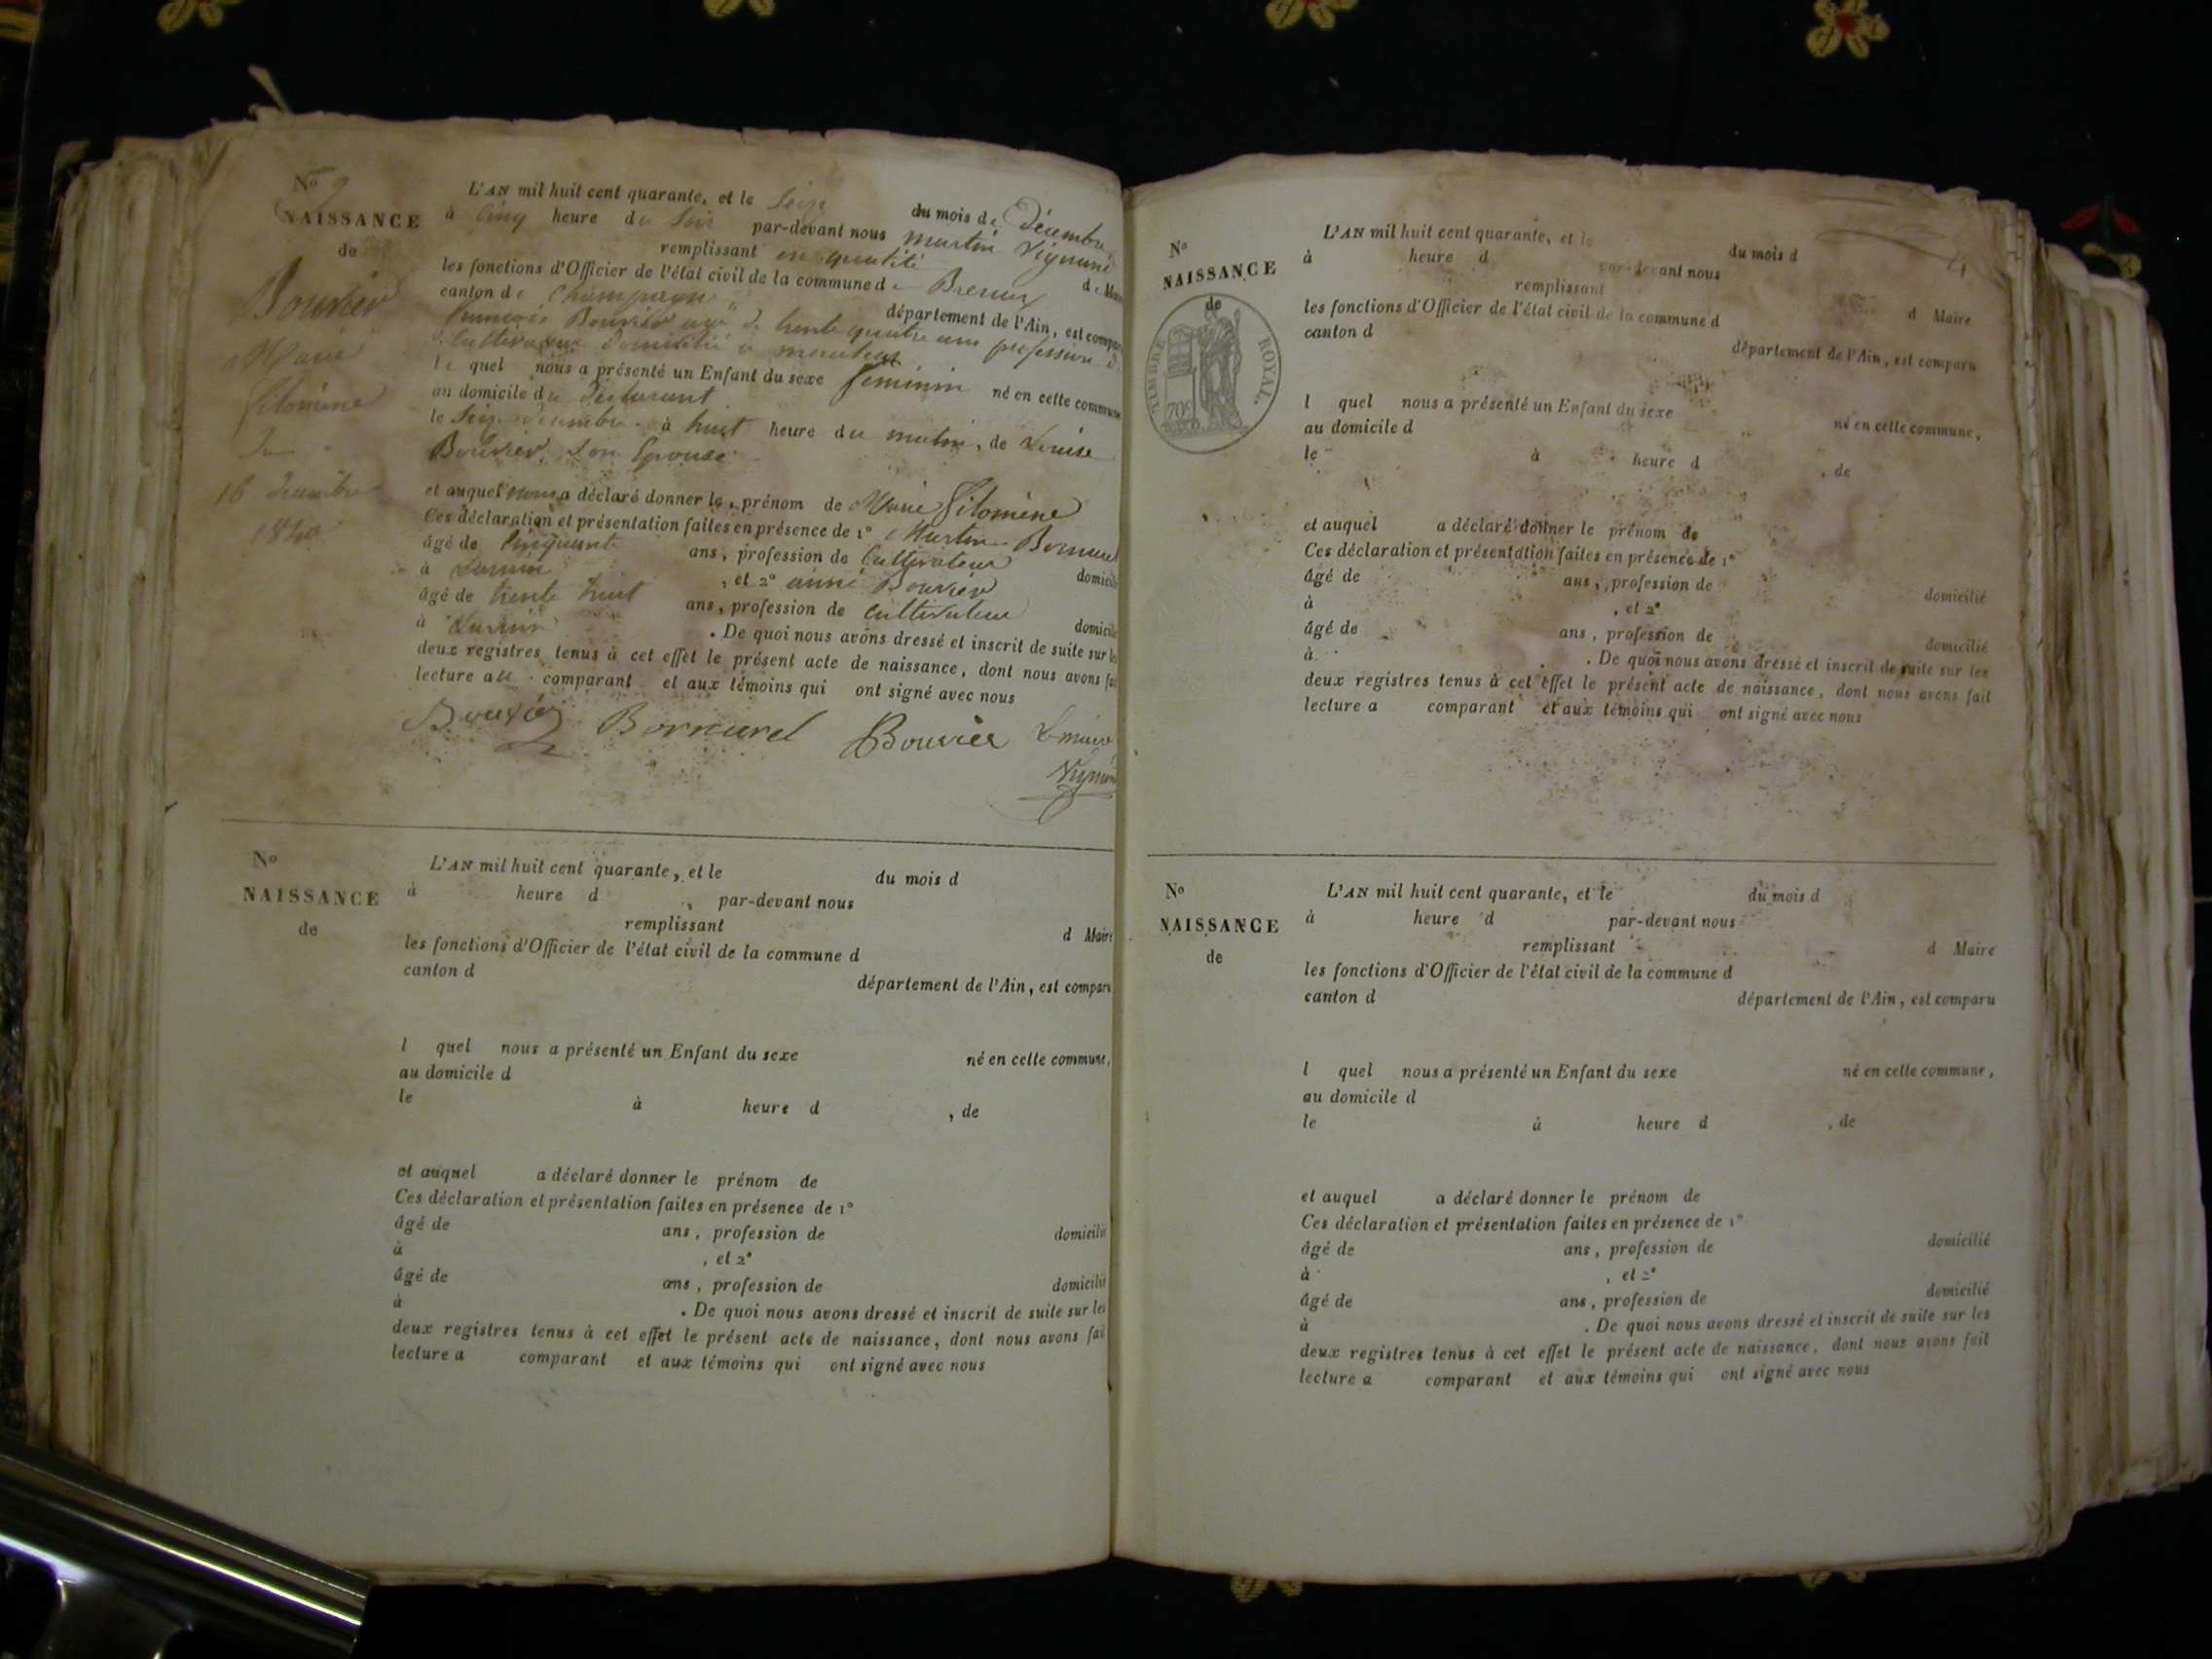 No 9
NAISSANCE
de
Bouvier
Marie
Filomène
16 décembre
1840
L'AN mil huit cent quarante, et le Seize du mois de Décembre
à Cinq heure du Soir par-devant nous Martin
remplissant en qualité de Maire
les fonctions d'Officier de l'état civil de la commune de
canton de Champagne département de l'Ain, est comparu
François Bouvier agé de trente quatre ans profession de
Cultivateur domicilié à
le quel nous a présenté un Enfant du sexe féminin né en cette commune
au domicile du déclarant
le Seize décembre à huit heure du matin, de Louise
Bouvier Son Epouse
et auquel nous a déclaré donner le prénom de Marie Filomène
Ces déclaration et présentation faites en présence de 1º Martin Bornarel
âgé de Cinquante ans, profession de Cultivateur domicilié
à
, et 2º aimé Bouvier
âgé de trente huit ans, profession de cultivateur domicilié
à
. De quoi nous avons dressé et inscrit de suite sur les
deux registres tenus à cet effet le présent acte de naissance, dont nous avons fait
lecture au comparant et aux témoins qui ont signé avec nous
Bouvier Bornarel Bouvier Le maire
No
NAISSANCE
de
L'AN mil huit cent quarante, et le du mois d
à heure d , par-devant nous
remplissant d Maire
les fonctions d'Officier de l'état civil de la commune d
canton d département de l'Ain, est comparu
l quel nous a présenté un Enfant du sexe né en cette commune,
au domicile d
le à heure d , de
et auquel a déclaré donner le prénom de
Ces déclaration et présentation faites en présence de 1º
âgé de ans, profession de domicilié
à , et 2º
âgé de ans, profession de domicilié
à . De quoi nous avons dressé et inscrit de suite sur les
deux registres tenus à cet effet le présent acte de naissance, dont nous avons fait
lecture a comparant et aux témoins qui ont signé avec nous
No
NAISSANCE
de
TIMBRE ROYAL.
70c
L'AN mil huit cent quarante, et le du mois d
à heure d par-devant nous
remplissant d Maire
les fonctions d'Officier de l'état civil de la commune d
canton d département de l'Ain, est comparu
l quel nous a présenté un Enfant du sexe né en cette commune,
au domicile d
le à heure d , de
et auquel a déclaré donner le prénom de
Ces déclaration et présentation faites en présence de 1º
âgé de ans, profession de domicilié
à , et 2º
âgé de ans, profession de domicilié
à . De quoi nous avons dressé et inscrit de suite sur les
deux registres tenus à cet effet le présent acte de naissance, dont nous avons fait
lecture a comparant et aux témoins qui ont signé avec nous
No
NAISSANCE
de
L'AN mil huit cent quarante, et le du mois d
à heure d par-devant nous
remplissant d Maire
les fonctions d'Officier de l'état civil de la commune d
canton d département de l'Ain, est comparu
l quel nous a présenté un Enfant du sexe né en cette commune,
au domicile d
le à heure d , de
et auquel a déclaré donner le prénom de
Ces déclaration et présentation faites en présence de 1º
âgé de ans, profession de domicilié
à , et 2º
âgé de ans, profession de domicilié
à . De quoi nous avons dressé et inscrit de suite sur les
deux registres tenus à cet effet le présent acte de naissance, dont nous avons fait
lecture a comparant et aux témoins qui ont signé avec nous